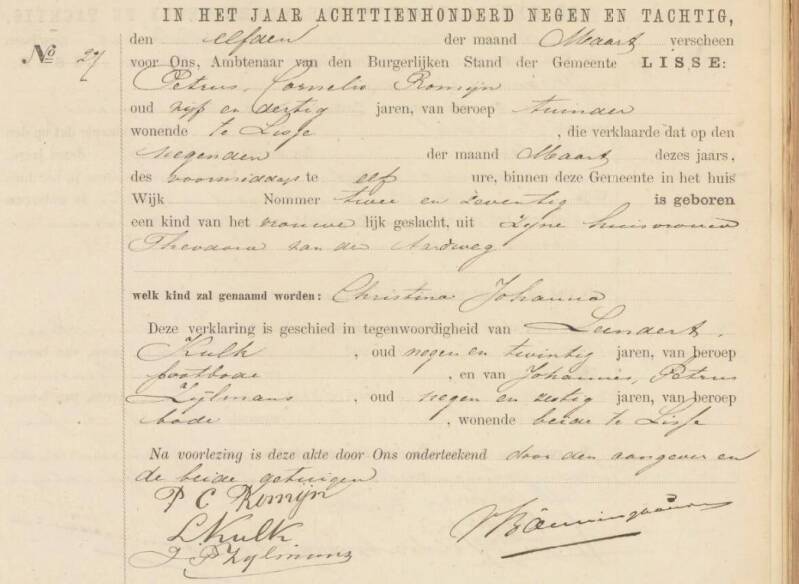 IN HET JAAR ACHTTIENHONDERD NEGEN EN TACHTIG,
No 27 den elfden der maand Maart verscheen
voor Ons, Ambtenaar van den Burgerlijken Stand der Gemeente LISSE:
Petrus, Cornelis Romijn
oud vijf en dertig jaren, van beroep tuinder
wonende te Lisse , die verklaarde dat op den
negenden der maand Maart dezes jaars,
des voormiddags te elf ure, binnen deze Gemeente in het huis
Wijk Nommer twee en zeventig is geboren
een kind van het vrouwe lijk geslacht, uit zijne huisvrouw
Theodora van der Aardweg
welk kind zal genaamd worden: Christina Johanna
Deze verklaring is geschied in tegenwoordigheid van Leendert,
Kulk , oud negen en twintig jaren, van beroep
postbode , en van Johannes, Petrus
Zijlmans , oud negen en zestig jaren, van beroep
bode , wonende beide te Lisse
Na voorlezing is deze akte door Ons onderteekend door den aangever en
de beide getuigen
P C Romijn
L Kulk
J. P Zijlmans